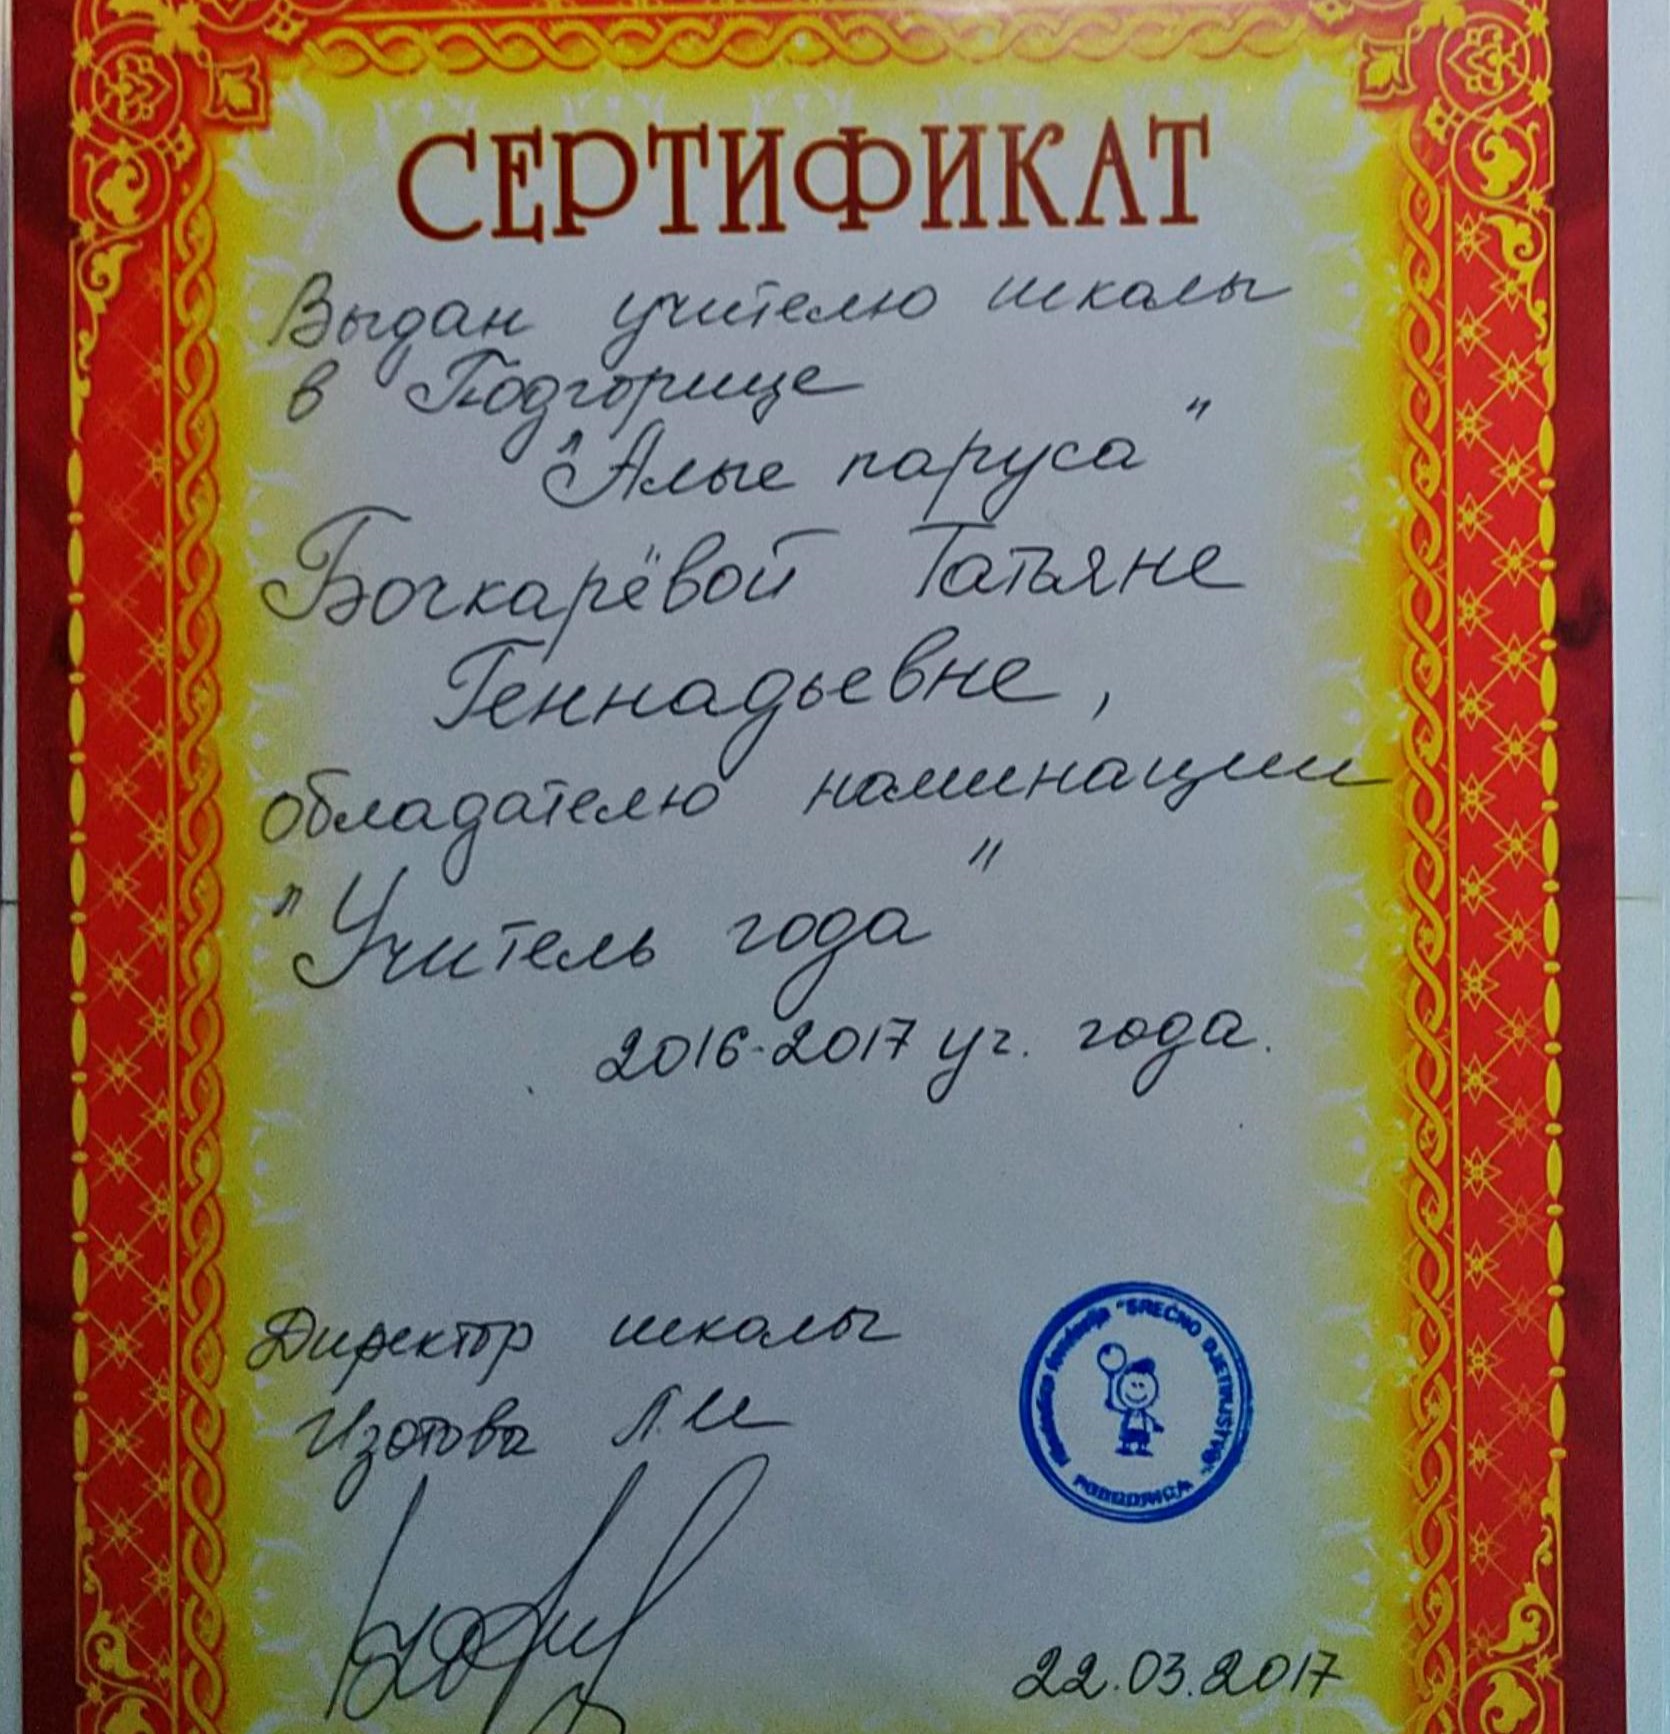 СЕРТИФИКАТ
Выдан учителю школы
в Подгорице
"Алые паруса"
Бочкарёвой Татьяне
Геннадьевне,
обладателю номинации
"Учитель года"
2016-2017 уч. года.
Директор школы
Изотова Л.И
"SREĆNO DJETINJSTVO"
PODGORICA
22.03.2017